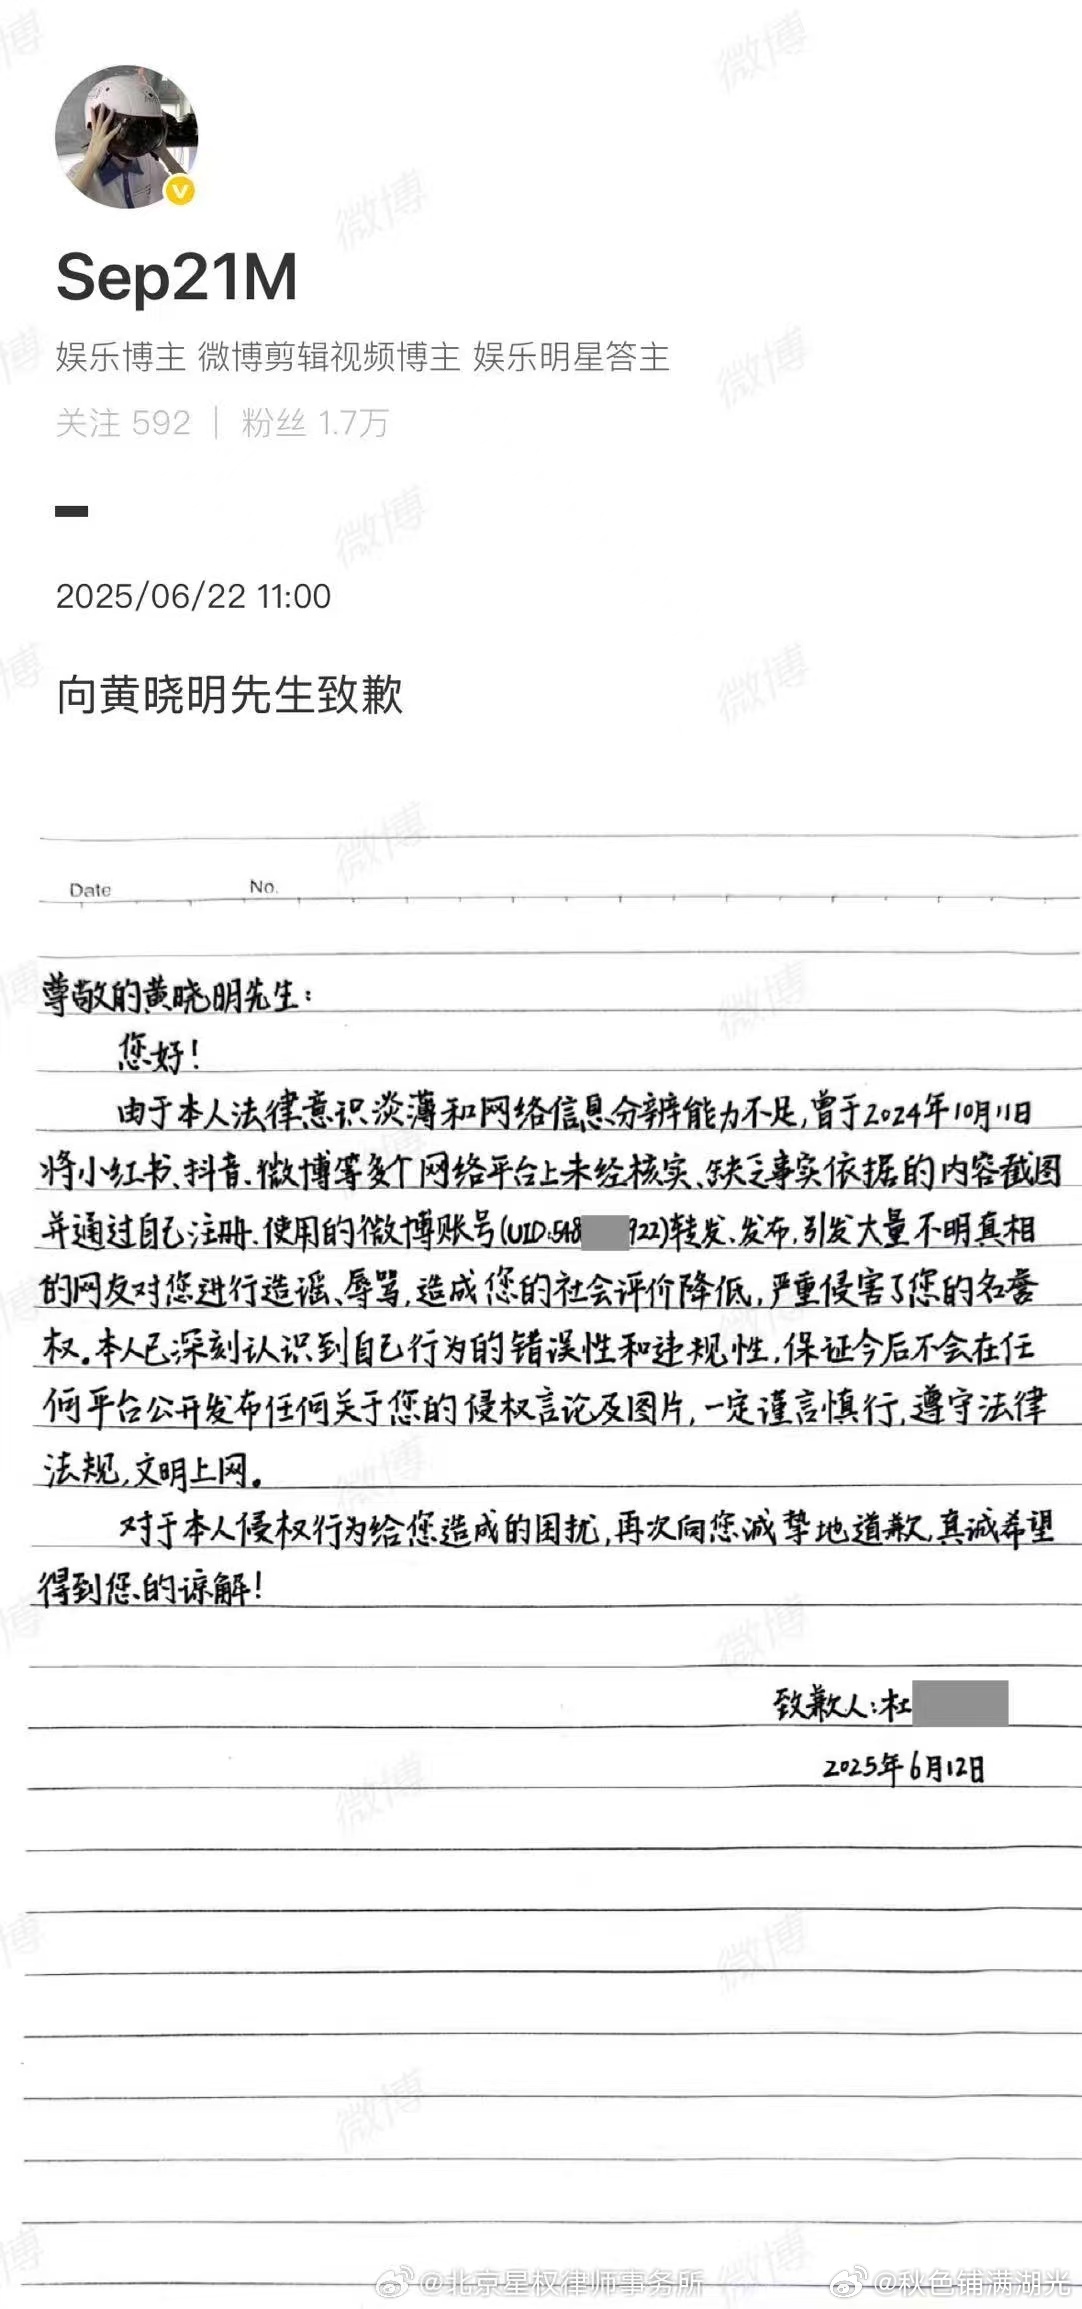 Sep21M
娱乐博主 微博剪辑视频博主 娱乐明星答主
关注 592 | 粉丝 1.7万
2025/06/22 11:00
向黄晓明先生致歉
Date No.
尊敬的黄晓明先生：
您好！
由于本人法律意识淡薄和网络信息分辨能力不足，曾于2024年10月11日
将小红书、抖音、微博等多个网络平台上未经核实、缺乏事实依据的内容截图
并通过自己注册、使用的微博账号(UID:548 922)转发、发布，引发大量不明真相
的网友对您进行造谣、辱骂，造成您的社会评价降低，严重侵害了您的名誉
权。本人已深刻认识到自己行为的错误性和违规性，保证今后不会在任
何平台公开发布任何关于您的侵权言论及图片，一定谨言慎行，遵守法律
法规，文明上网。
对于本人侵权行为给您造成的困扰，再次向您诚挚地道歉，真诚希望
得到您的谅解！
致歉人：杜
2025年6月12日
@北京星权律师事务所 @秋色铺满湖光